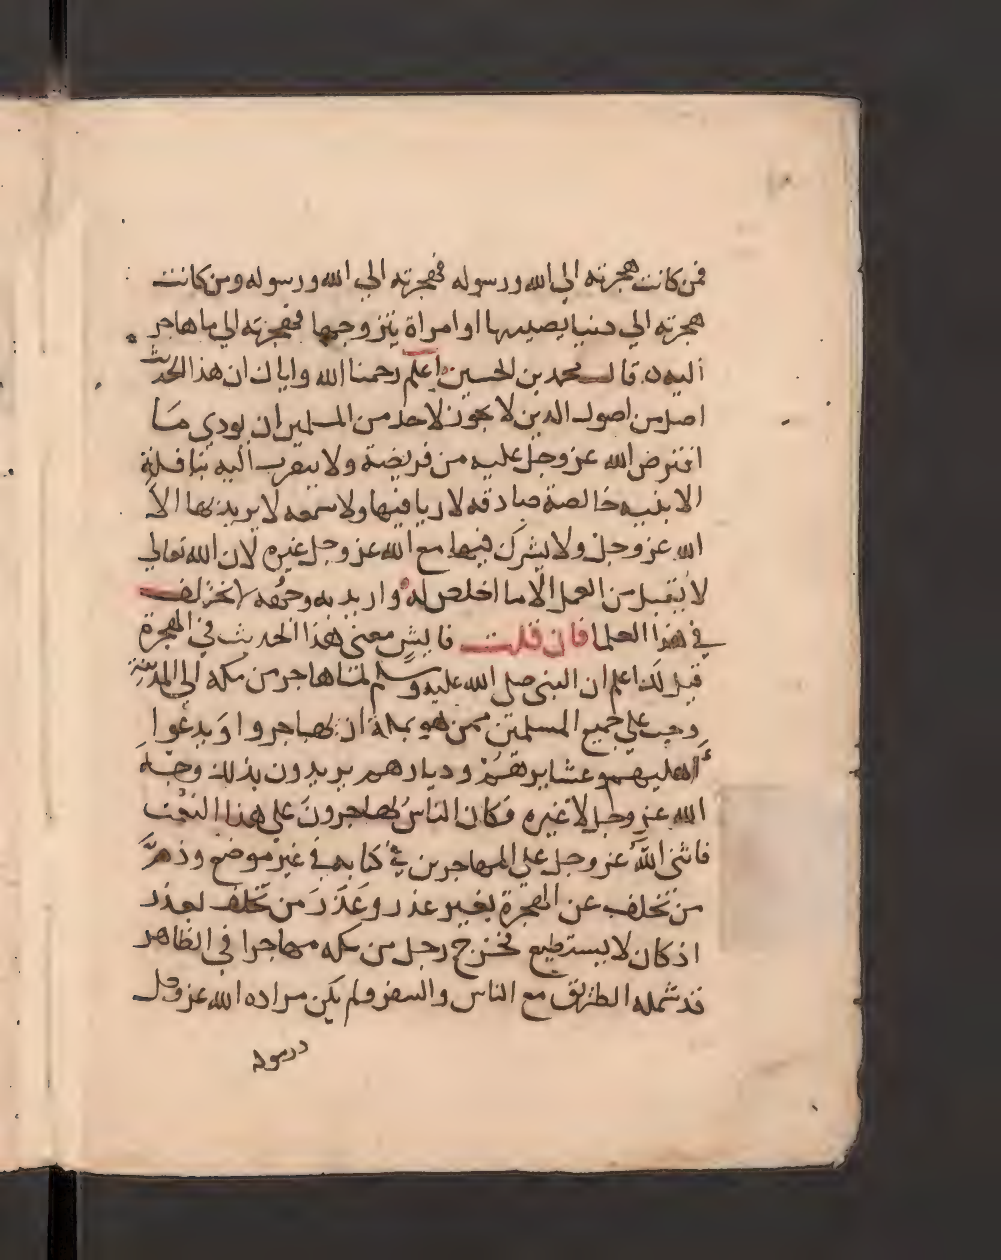 فمن كانت هجرته الي الله ورسوله فهجرته الي الله ورسوله ومن كانت
هجرته الي دنيا يصيبها او امراة يتزوجها فهجرته الي ما هاجر
اليه قال محمد بن الحسين اعلم رحمنا الله واياك ان هذا الحديث
اصل من اصول الدين لا يجوز لاحد من المسلمين ان يودي ما
افترض الله عز وجل عليه من فريضة ولا يتقرب اليه بنافلة
الا بنيه خالصة صادقه لا ريا فيها ولا سمعه لا يريد بها الا
الله عز وجل ولا يشرك فيها مع الله عز وجل غيره لان الله تعالي
لا يقبل من العمل الا ما اخلص له واريد به وجهه لا يختلف
في هذا العلما فان قلت فايش معني هذا الحديث في الهجرة
قيل لك اعلم ان النبي صلى الله عليه وسلم لما هاجر من مكه الي المدينة
وجب علي جميع المسلمين ممن هو بمكة ان يهاجروا ويدعوا
اهليهم وعشايرهم وديارهم يريدون بذلك وجه
الله عز وجل لا غيره فكان الناس يهاجرون علي هذا النعت
فاثني الله عز وجل علي المهاجرين في كتابه في غير موضع وذم
من تخلف عن الهجرة بغير عذر وعذر من تخلف لعذر
اذ كان لا يستطيع فخرج رجل من مكه مهاجرا في الظاهر
قد شمله الطريق مع الناس والسفر ولم يكن مراده الله عز وجل
ورسوله